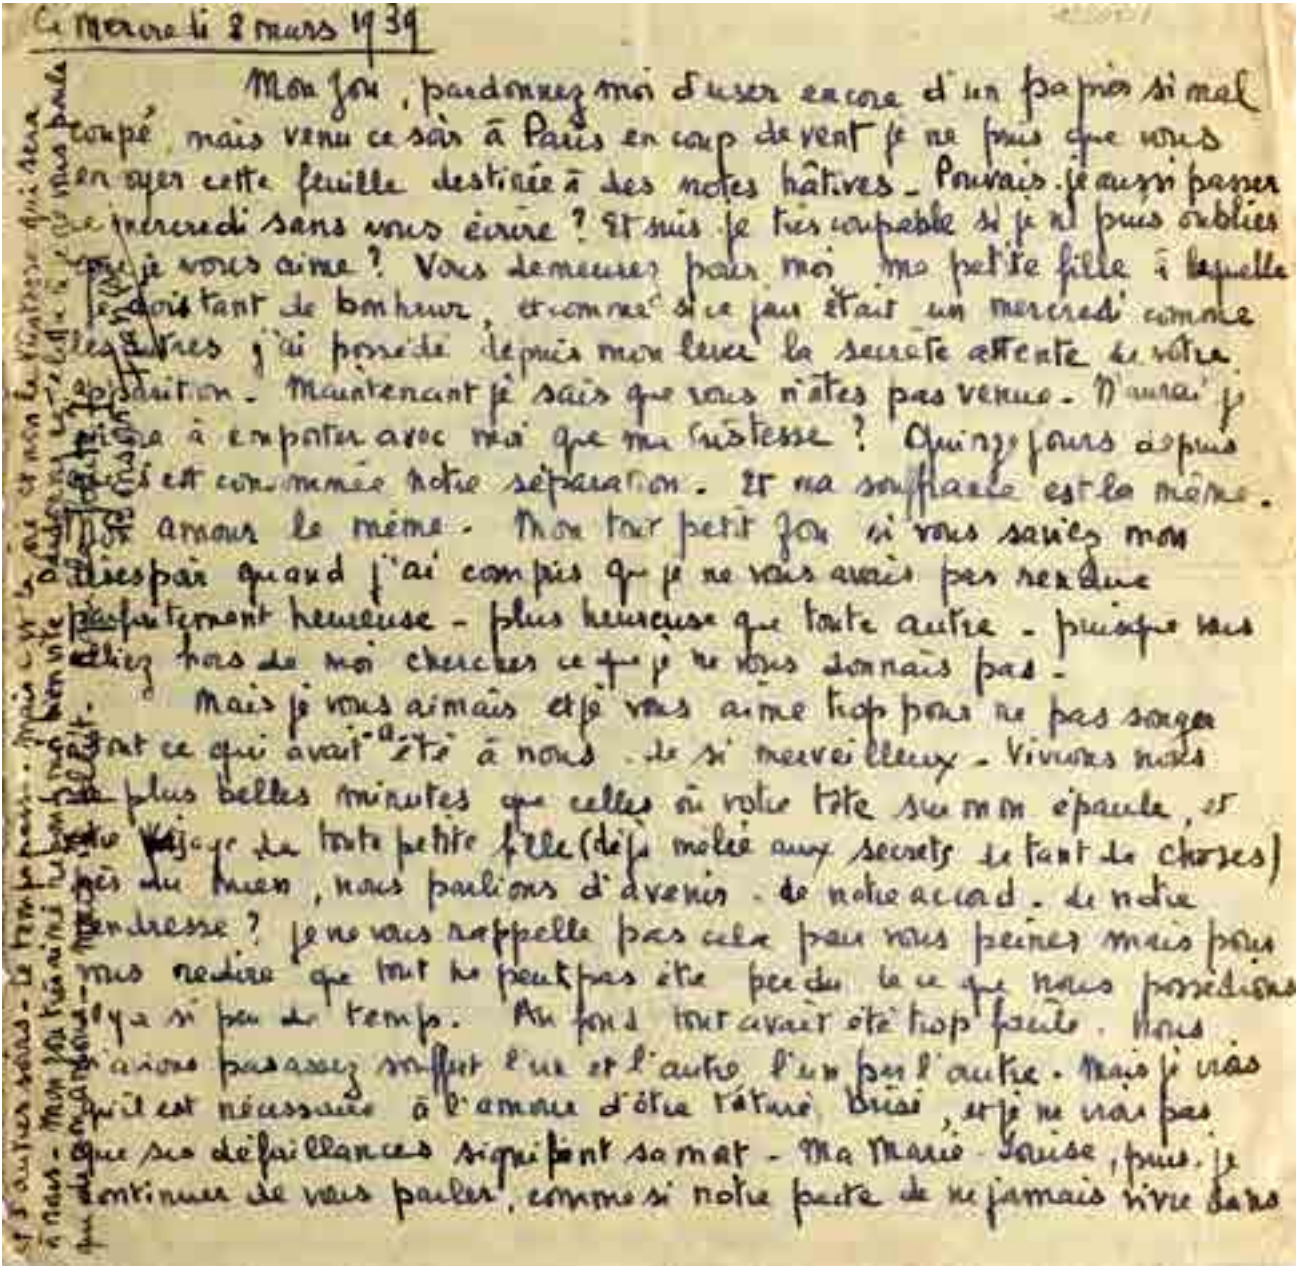 Ce mercredi 8 mars 1939
Mon Zou, pardonnez moi d'user encore d'un papier si mal
coupé, mais venu ce soir à Paris en coup de vent je ne puis que vous
envoyer cette feuille destinée à des notes hâtives - Pouvais-je aussi passer
ce mercredi sans vous écrire ? Et suis je très coupable si je ne puis oublier
que je vous aime ? Vous demeurez pour moi ma petite fille à laquelle
je dois tant de bonheur, et comme si ce jour était un mercredi comme
les autres j'ai possédé depuis mon lever la secrète attente de votre
apparition - Maintenant je sais que vous n'êtes pas venue - N'aurai je
à emporter avec moi que ma tristesse ? Quinze jours depuis
que s'est consommée notre séparation. Et ma souffrance est la même.
Mon amour le même. Mon tout petit Zou si vous saviez mon
désespoir quand j'ai compris que je ne vous avais pas rendue
parfaitement heureuse - plus heureuse que toute autre - puisque vous
alliez hors de moi chercher ce que je ne vous donnais pas -
Mais je vous aimais et je vous aime trop pour ne pas songer
à tout ce qui avait été à nous - de si merveilleux - Vivrons nous
de plus belles minutes que celles où votre tête sur mon épaule, et
votre visage de toute petite fille (déjà mêlée aux secrets de tant de choses)
près du mien, nous parlions d'avenir - de notre accord - de notre
tendresse ? je ne vous rappelle pas cela pour vous peiner mais pour
vous redire que tout ne peut pas être perdu de ce que nous possédions
il y a si peu de temps. Au fond tout avait été trop facile. Nous
n'avons pas assez souffert l'un et l'autre l'un par l'autre. Mais je crois
qu'il est nécessaire à l'amour d'être raturé, brisé, et je ne crois pas
que ses défaillances signifient sa mort - Ma Marie-Louise, puis-je
continuer de vous parler, comme si notre pacte de ne jamais vivre dans
et d'autres soirs - Le temps passe - mais
à nous - Mon Zou bien vite